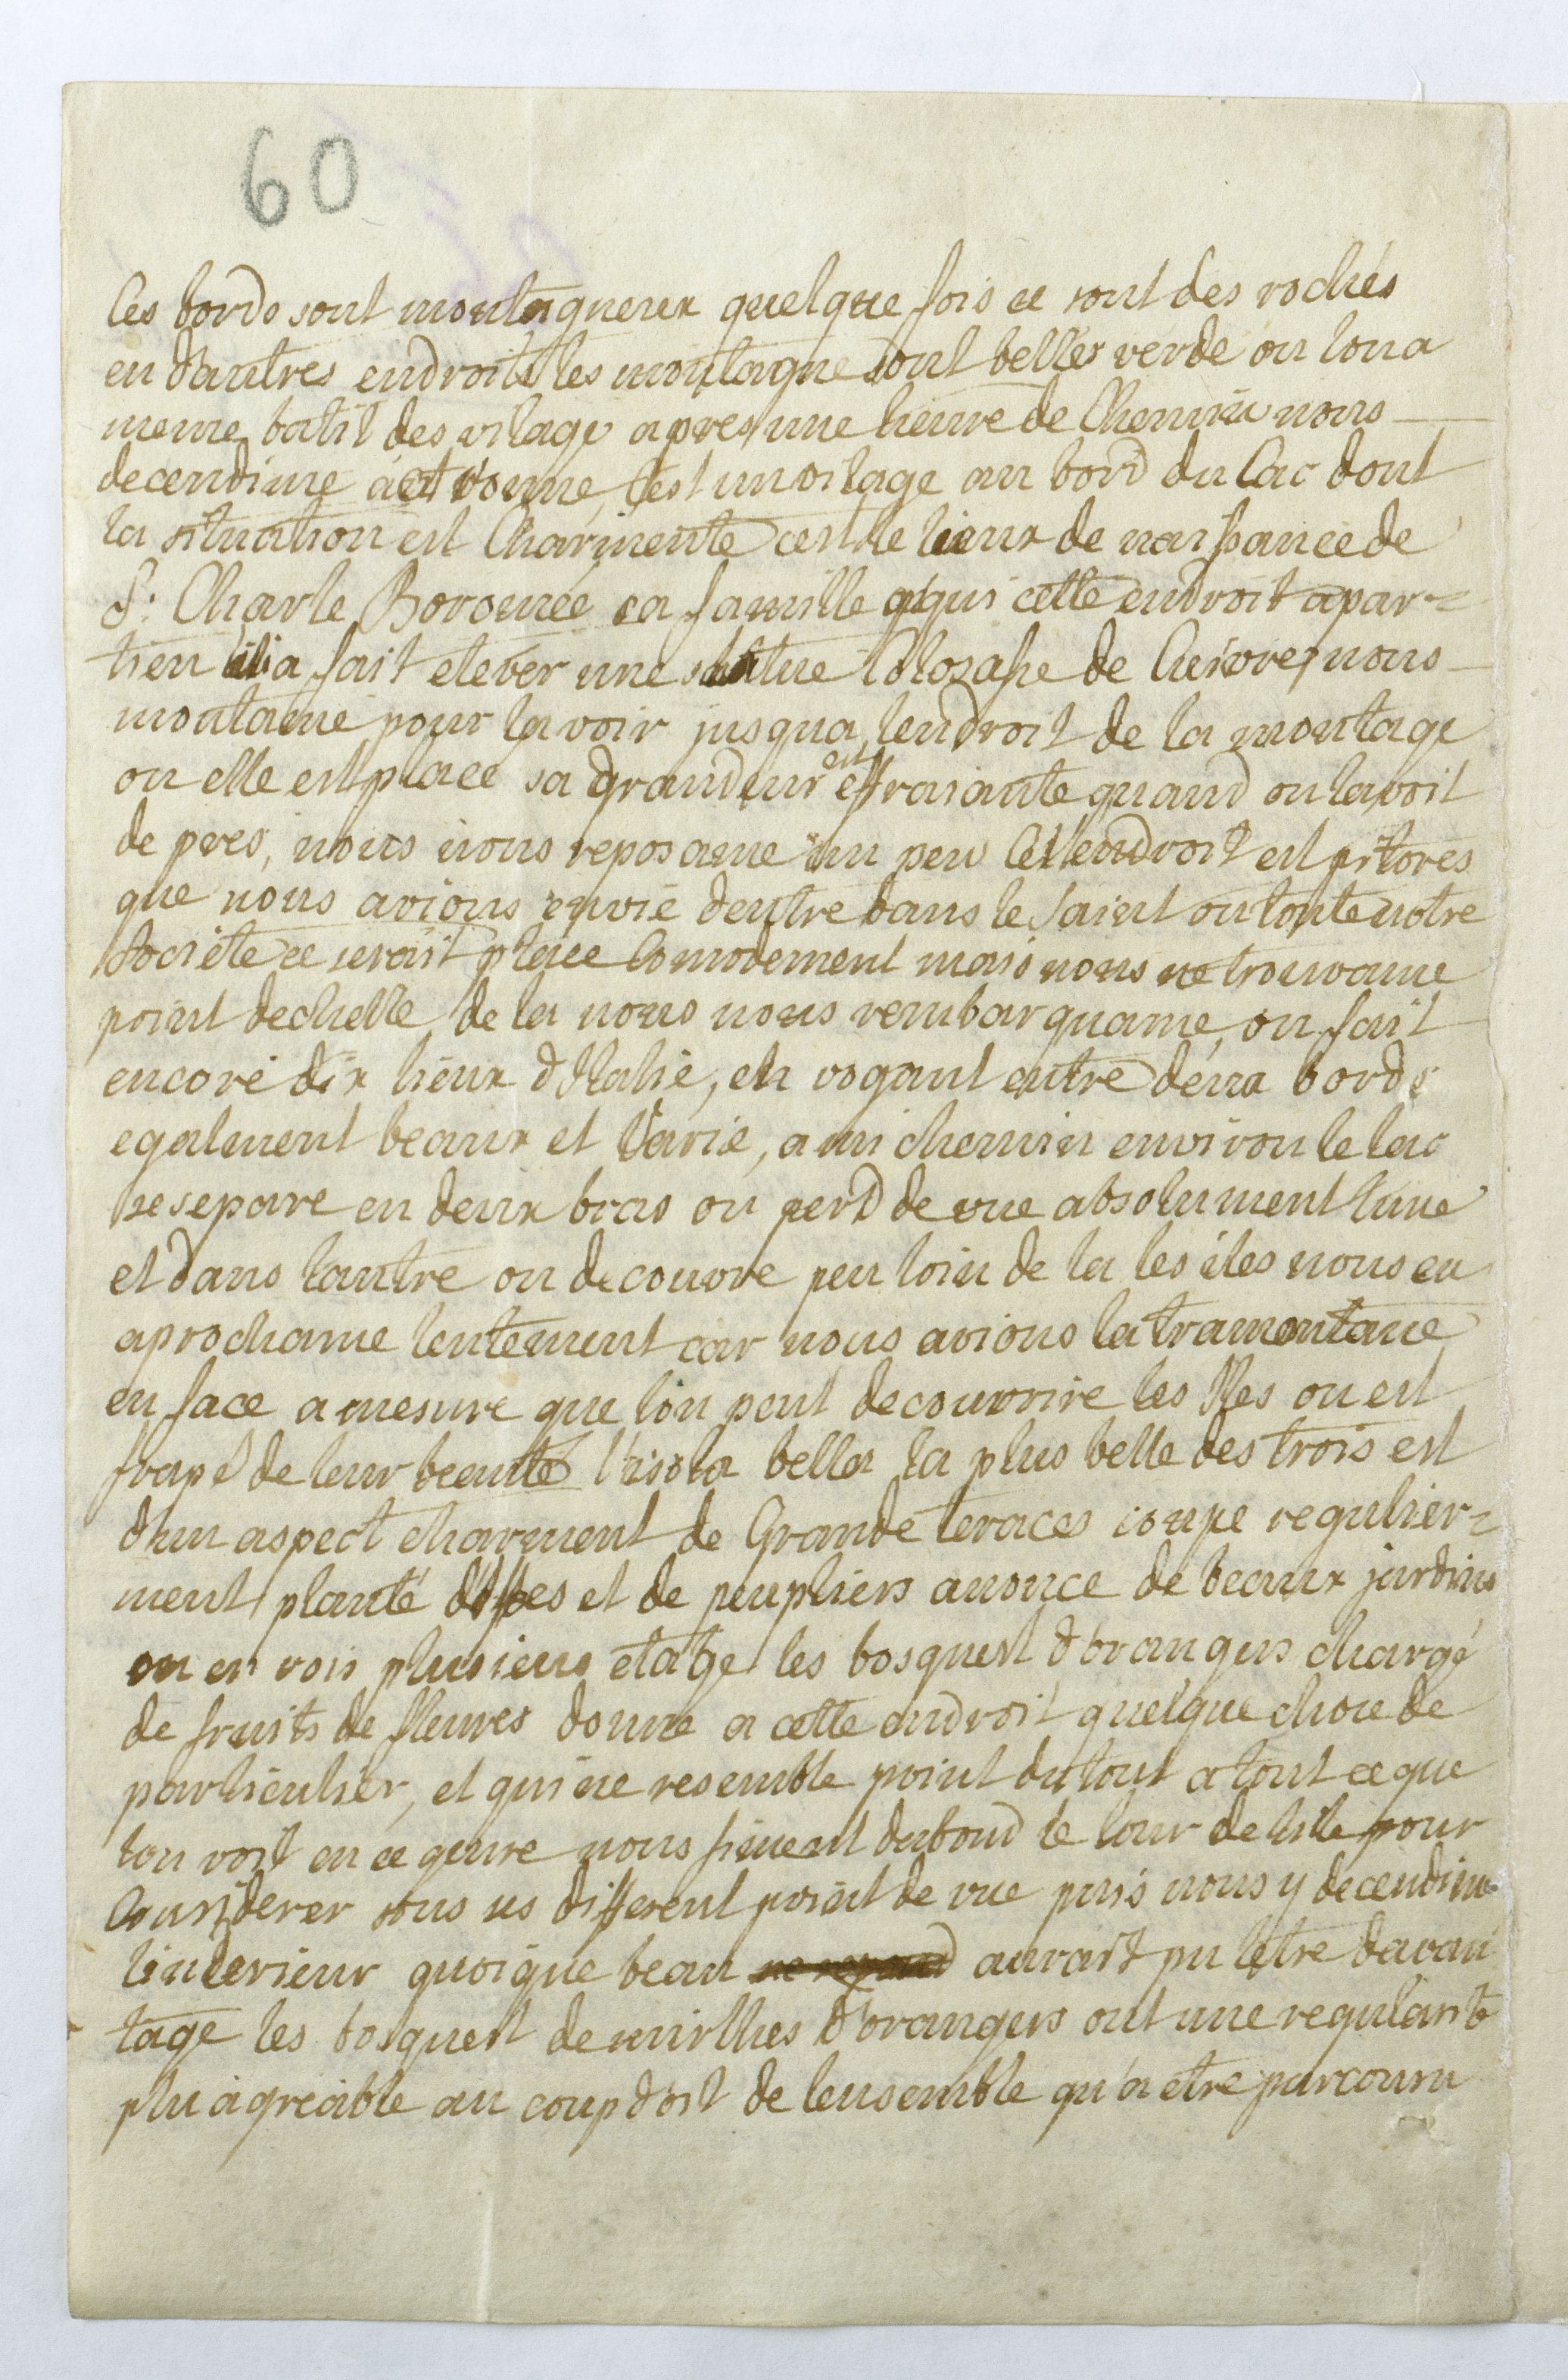 60
Ces bords sont montagneux quelque fois ce sont des rochés
en d'autres endroits les montagne sont belles verde ou lon a
meme batit des vilage apres une heure de Chemin nous
decendime à C'est un vilage au bord du Lac dont
la situation est Charmente cest le lieux de naissance de
S: Charle Boromée sa famille a qui cette endroit apar=
tien lia fait elever une statue Colosasse de Cuivre, nous
montame pour la voir jusqua lendroit de la montage
ou elle est place sa grandeur est effraiante quand on la voit
de pres, nous nous reposame un peu Cet endroit est pitores
que nous avions envie dentre dans le Saint ou toute notre
Societe ce serait place Comodement mais nous ne trouvame
point dechelle de la nous nous rembarquame, on fait
encore dix lieux d'Italie, en vogant entre deux bords
egalment beaux et Varié, a mi chemin environ le lac
se separe en deux bras on perd de vue absolument lune
et dans lautre on decouvre peu loin de la les iles nous en
aprochame lentement car nous avions la tramontane
en face a mesure que lon peut decouvrire les Iles on est
frapé de leur beauté l'isola bella la plus belle des trois est
d'un aspect charment de Grande teraces coupe regulier=
ment planté d'ifses et de peupliers anonce de beaux jardins
on en vois plusieurs etage les bosquest d'orangers chargé
de fruits de fleures donne a cette endroit quelque chose de
particulier, et qui ne resemble point du tout a tout ce que
lon voit en ce genre nous fiment dabord le tour de lile pour
Considerer sous ses different point de vue puis nous y decendime
linterieur quoique beau aurait pu letre davan
tage les bosquest de mirthes d'orangers ont une regularité
plu agreable au coup d'oit de lensemble qu'a etre parcouru